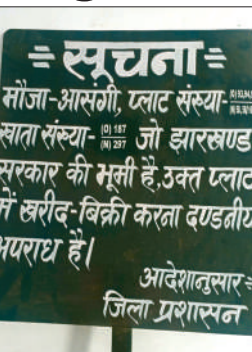 =सूचना=
मौजा-आसंगी, प्लाट संख्या-
खाता संख्या- (O) 187 (N) 297 जो झारखण्ड
सरकार की भूमी है,उक्त प्लाट
में खरीद-बिक्री करना दण्डनीय
अपराध है।
आदेशानुसार:-
जिला प्रशासन